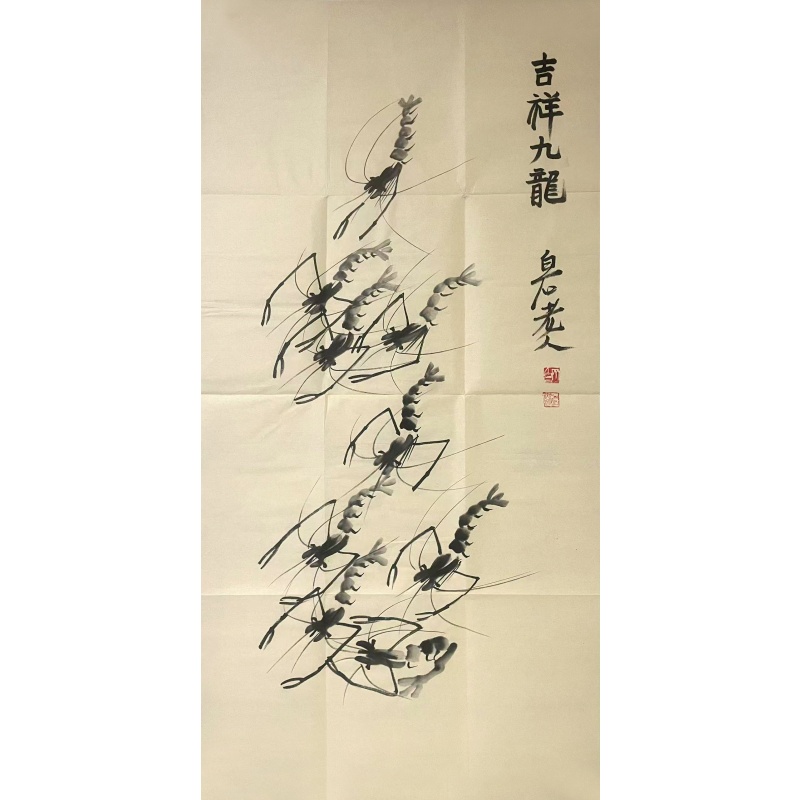 吉祥九龍
白石老人